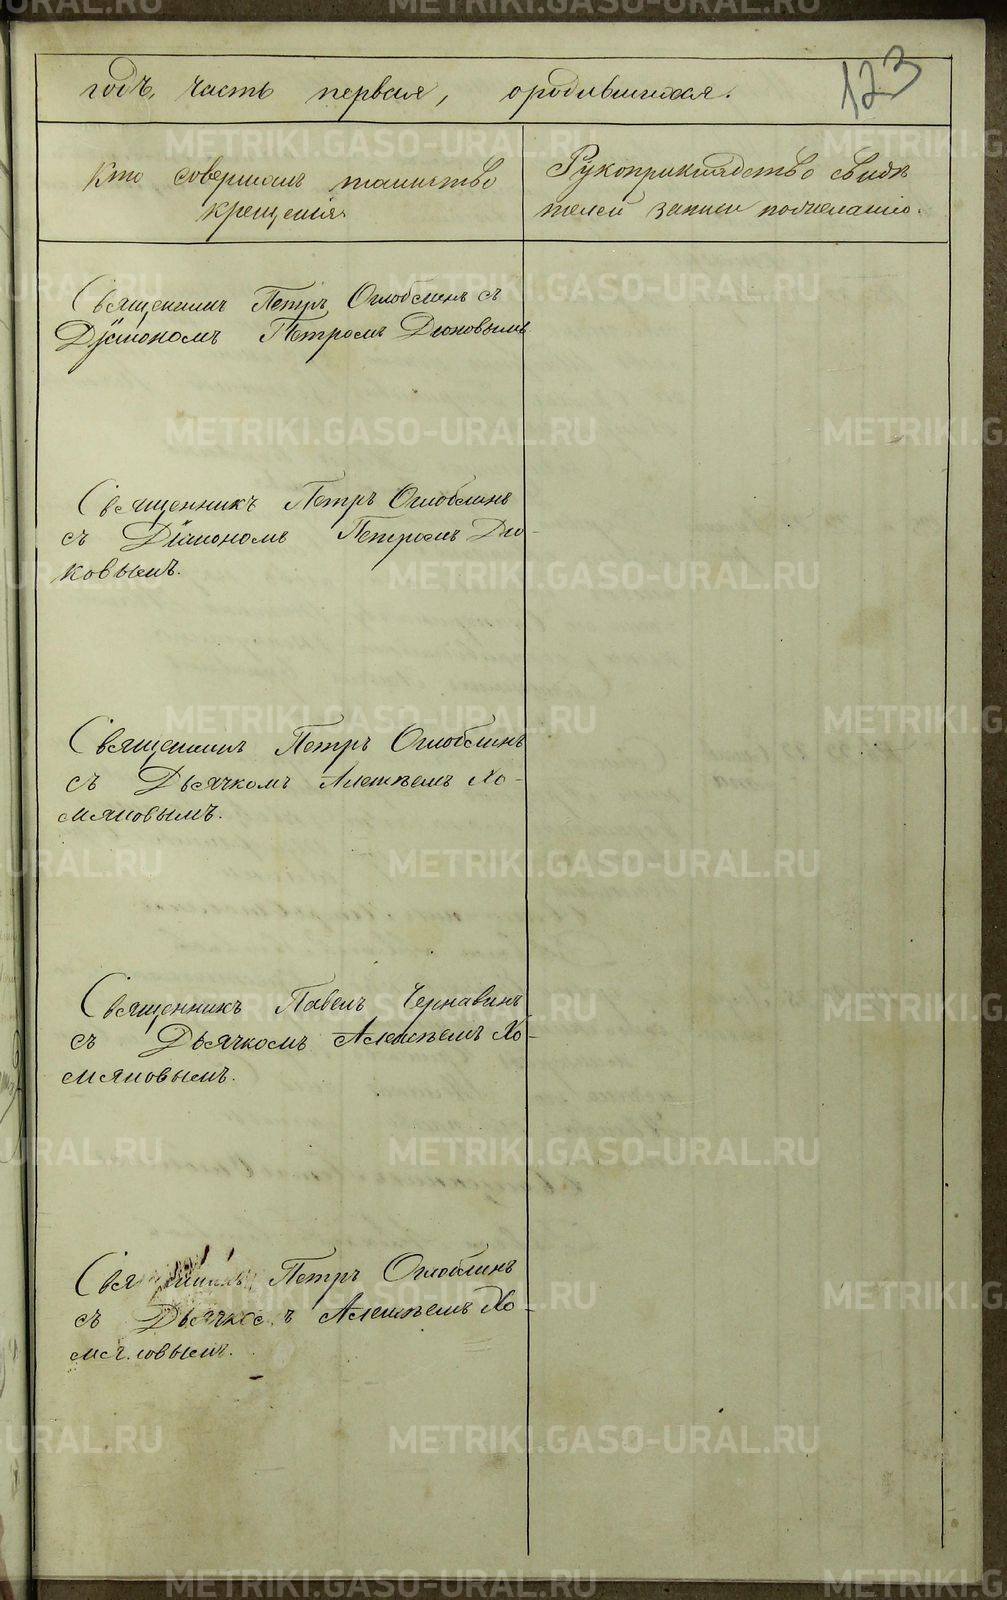 123
годъ, часть первая, о родившихся.
Кто совершалъ таинство
крещенія.
Рукоприкладство свидѣ
телей записи по желанію.
Священникъ Петръ Оглоблинъ съ
Діакономъ Петромъ Дюковымъ
Священникъ Петръ Оглоблинъ
съ Діакономъ Петромъ Дю-
ковымъ.
Священникъ Петръ Оглоблинъ
съ Дьячкомъ Алексѣемъ Хо-
мяковымъ.
Священникъ Павелъ Чернавинъ
съ Дьячкомъ Алексѣемъ Хо-
мяковымъ.
Священникъ Петръ Оглоблинъ
съ Дьячкомъ Алексѣемъ Хо-
мяковымъ.
METRIKI.GASO-URAL.RU